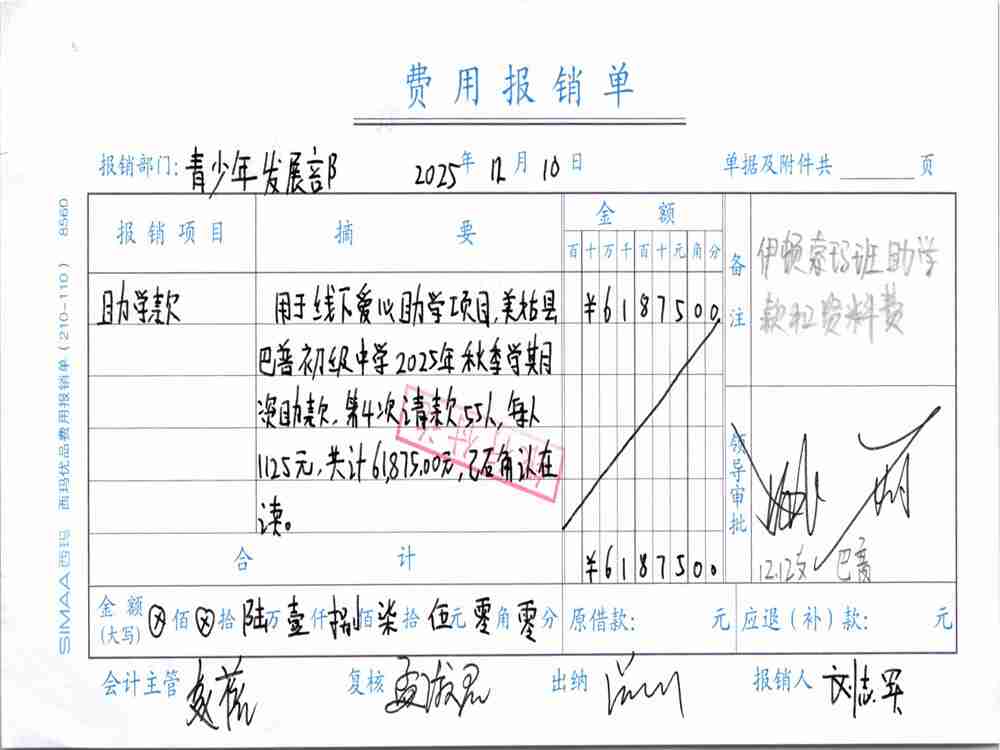 费用报销单
报销部门: 青少年发展部 2025年 12月 10日 单据及附件共 页
报销项目 摘要 金额
百十万千百十元角分
备注 伊顿索玛班助学
款和资料费
助学款 用于线下爱心助学项目,美姑县 ¥6187500
巴普初级中学2025年秋季学期
资助款,第4次请款55人,每人
1125元,共计61,875.00元,已确认在
读。
领导审批
12.12 巴普
合计 ¥6187500
金额(大写) ⊗佰⊗拾陆万壹仟捌佰柒拾伍元零角零分 原借款: 元 应退(补)款: 元
会计主管 复核 出纳 报销人 刘志军
SIMAA西玛 西玛优品费用报销单(210-110) 8560